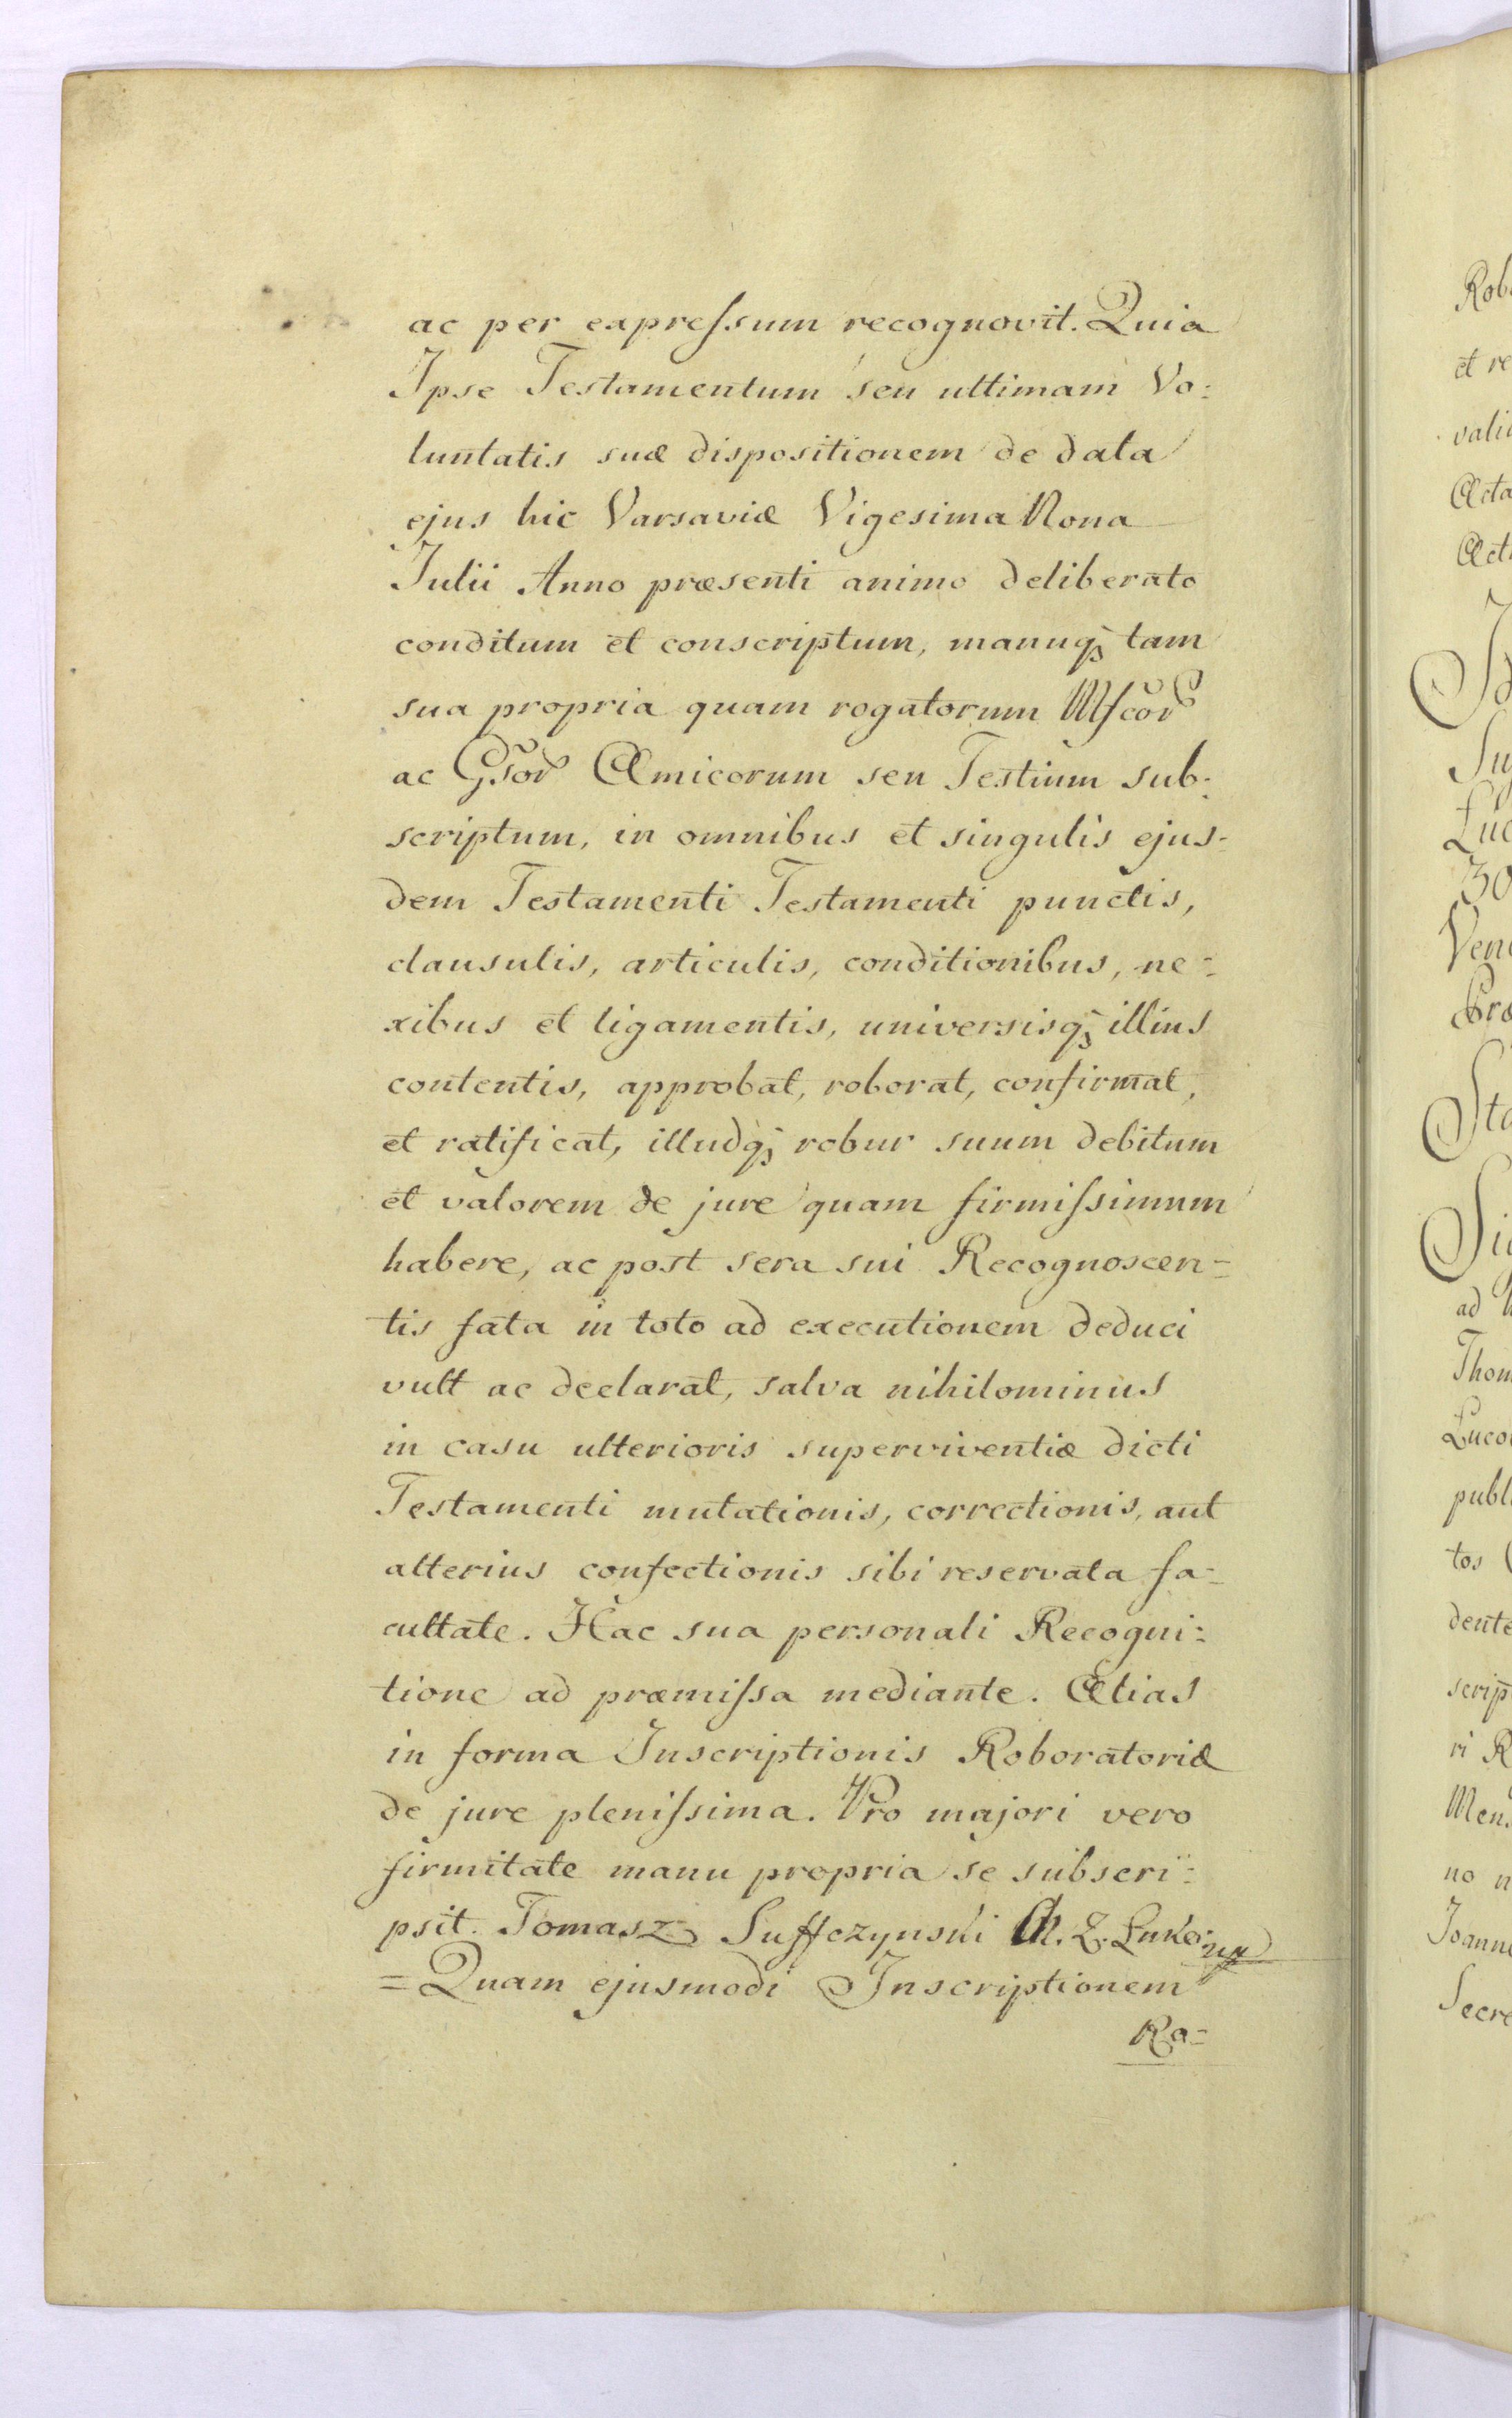 ac per expreſsum recognovit. Quia
Ipse Testamentum seu ultimam Vo:
luntatis suæ dispositionem de data
ejus hic Varsaviæ Vigesima Nona
Julii Anno præsenti animo deliberato
conditum et conscriptum, manuqꝫ tam
sua propria quam rogatorum
ac Amicorum seu Testium sub:
scriptum, in omnibus et singulis ejus-
dem Testamenti Testamenti punctis,
clausulis, articulis, conditionibus, ne-
xibus et ligamentis, universisqꝫ illius
contentis, approbat, roborat, confirmat,
et ratificat, illudqꝫ robur suum debitum
et valorem de jure quam firmiſsimum
habere, ac post sera sui Recognoscen=
tis fata in toto ad executionem deduci
vult ac declarat, salva nihilominus
in casu ulterioris superviventiæ dicti
Testamenti mutationis, correctionis, aut
alterius confectionis sibi reservata fa-
cultate. Hac sua personali Recogni:
tione ad præmiſsa mediante. Alias
in forma Inscriptionis Roboratoriæ
de jure pleniſsima. Pro majori vero
firmitate manu propria se subscri:
psit. Tomasz Suffczynski Ch. Z. Łuko:
=Quam ejusmodi Inscriptionem
Ra=
Rob
et re
vali
Acta
Act
Su
Luc
30
Ven
Præ
Sta
ad
Thom
Luco
publ
tos
dente
scrip
ri R
Mens
no n
Joanne
Secre